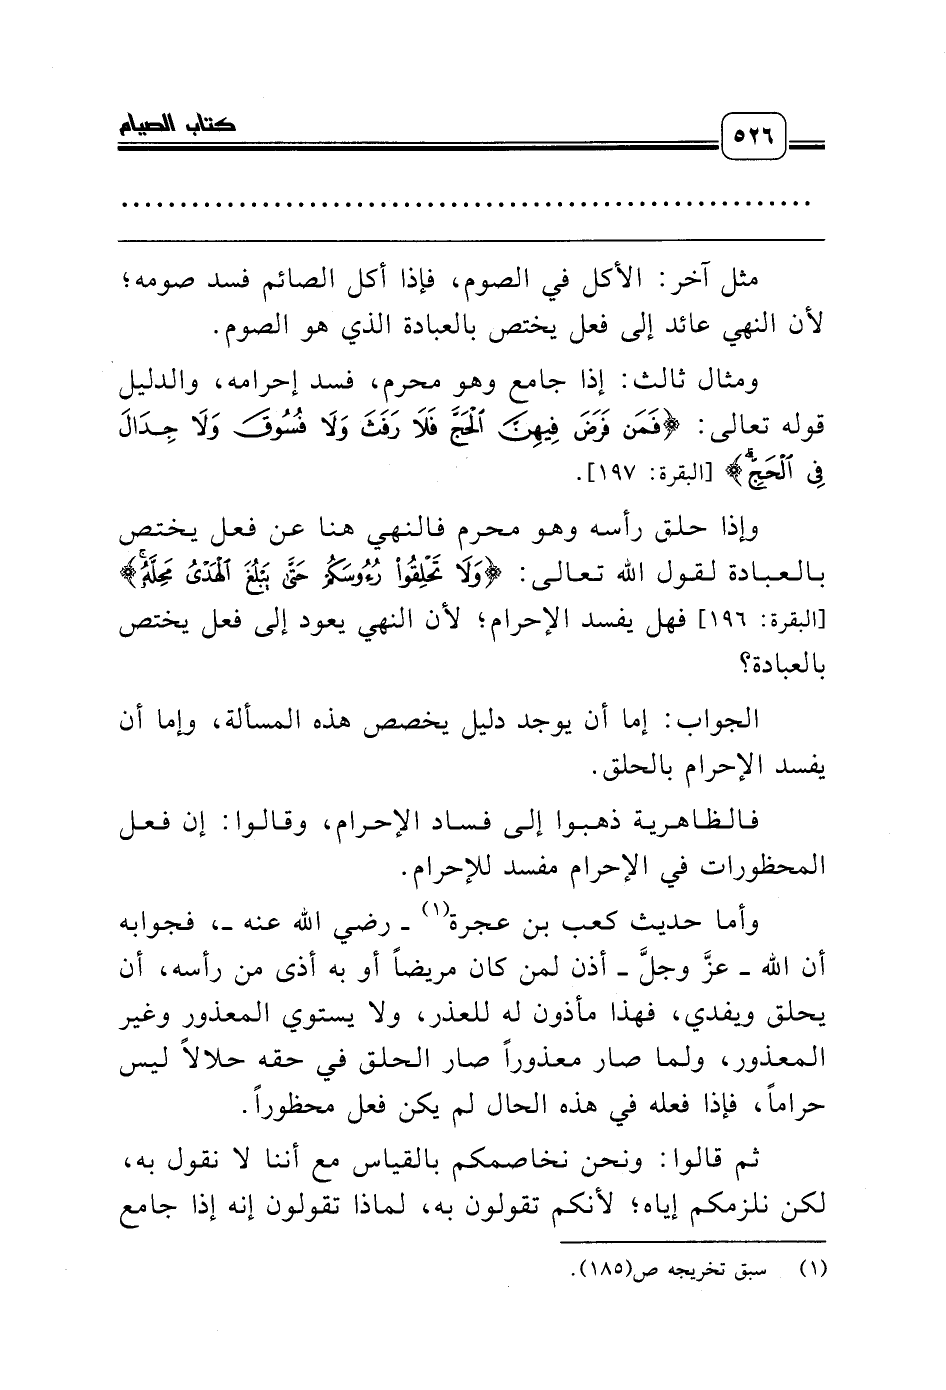 كتاب الصيام
٥٢٦
مثل آخر: الأكل في الصوم، فإذا أكل الصائم فسد صومه؛
لأن النهي عائد إلى فعل يختص بالعبادة الذي هو الصوم.
ومثال ثالث: إذا جامع وهو محرم، فسد إحرامه، والدليل
قوله تعالى: ﴿فَمَن فَرَضَ فِيهِنَّ ٱلْحَجَّ فَلَا رَفَثَ وَلَا فُسُوقَ وَلَا جِدَالَ
فِى ٱلْحَجِّ ۗ﴾ [البقرة: ١٩٧].
وإذا حلق رأسه وهو محرم فالنهي هنا عن فعل يختص
بالعبادة لقول الله تعالى: ﴿وَلَا تَحْلِقُوا۟ رُءُوسَكُمْ حَتَّىٰ يَبْلُغَ ٱلْهَدْىُ مَحِلَّهُۥ ۚ﴾
[البقرة: ١٩٦] فهل يفسد الإحرام؛ لأن النهي يعود إلى فعل يختص
بالعبادة؟
الجواب: إما أن يوجد دليل يخصص هذه المسألة، وإما أن
يفسد الإحرام بالحلق.
فالظاهرية ذهبوا إلى فساد الإحرام، وقالوا: إن فعل
المحظورات في الإحرام مفسد للإحرام.
وأما حديث كعب بن عجرة(١) ـ رضي الله عنه ـ، فجوابه
أن الله ـ عزَّ وجلَّ ـ أذن لمن كان مريضاً أو به أذى من رأسه، أن
يحلق ويفدي، فهذا مأذون له للعذر، ولا يستوي المعذور وغير
المعذور، ولما صار معذوراً صار الحلق في حقه حلالاً ليس
حراماً، فإذا فعله في هذه الحال لم يكن فعل محظوراً.
ثم قالوا: ونحن نخاصمكم بالقياس مع أننا لا نقول به،
لكن نلزمكم إياه؛ لأنكم تقولون به، لماذا تقولون إنه إذا جامع
(١) سبق تخريجه ص(١٨٥).